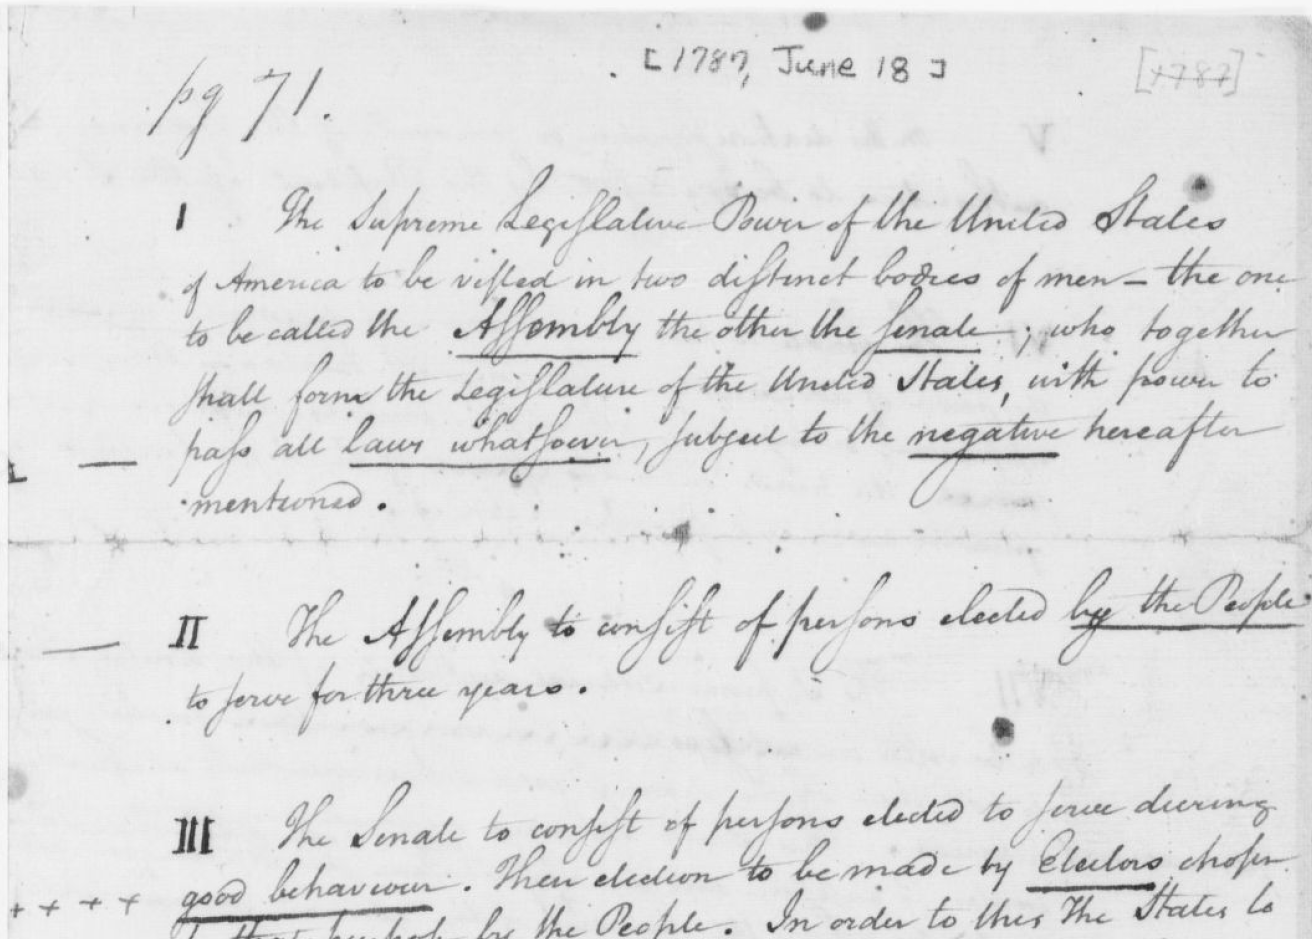 [1787, June 18]
[1787]
pg 71.
I The Supreme Legislative Power of the United States
of America to be vested in two distinct bodies of men – the one
to be called the Assembly the other the Senate; who together
shall form the Legislature of the United States, with power to
pass all laws whatsoever, subject to the negative hereafter
mentioned.
II The Assembly to consist of persons elected by the People
to serve for three years.
III The Senate to consist of persons elected to serve during
good behaviour. Their election to be made by Electors chosen
by the People. In order to this The States to